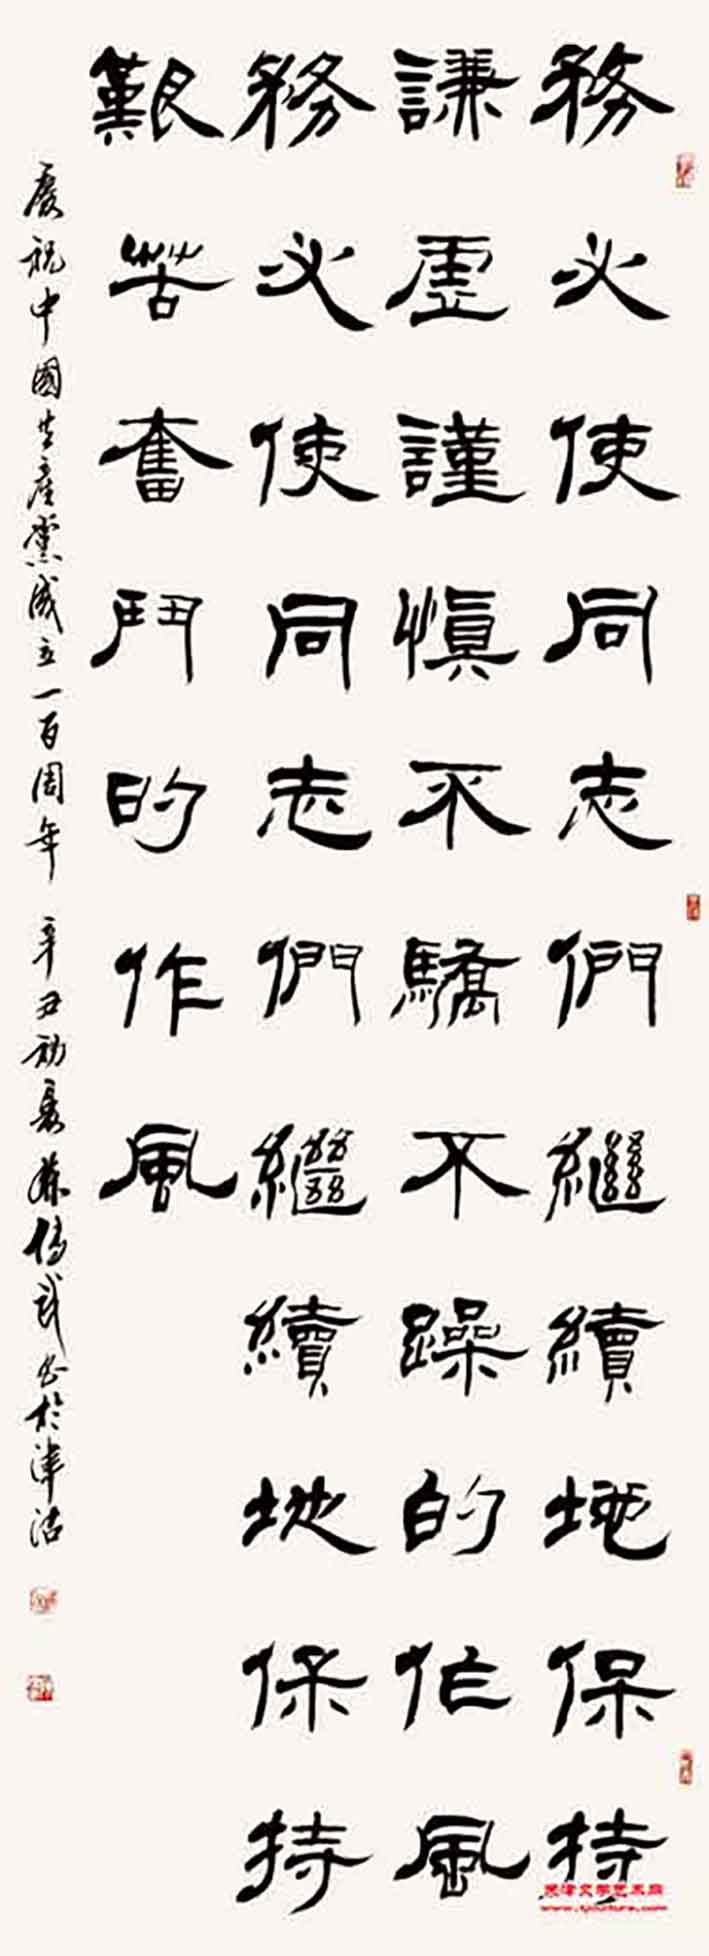 務必使同志們繼續地保持
謙虛謹慎不驕不躁的作風
務必使同志們繼續地保持
艱苦奮鬥的作風
慶祝中國共產黨成立一百周年 辛丑初夏蘇傳武書於津沽
天津文学艺术网